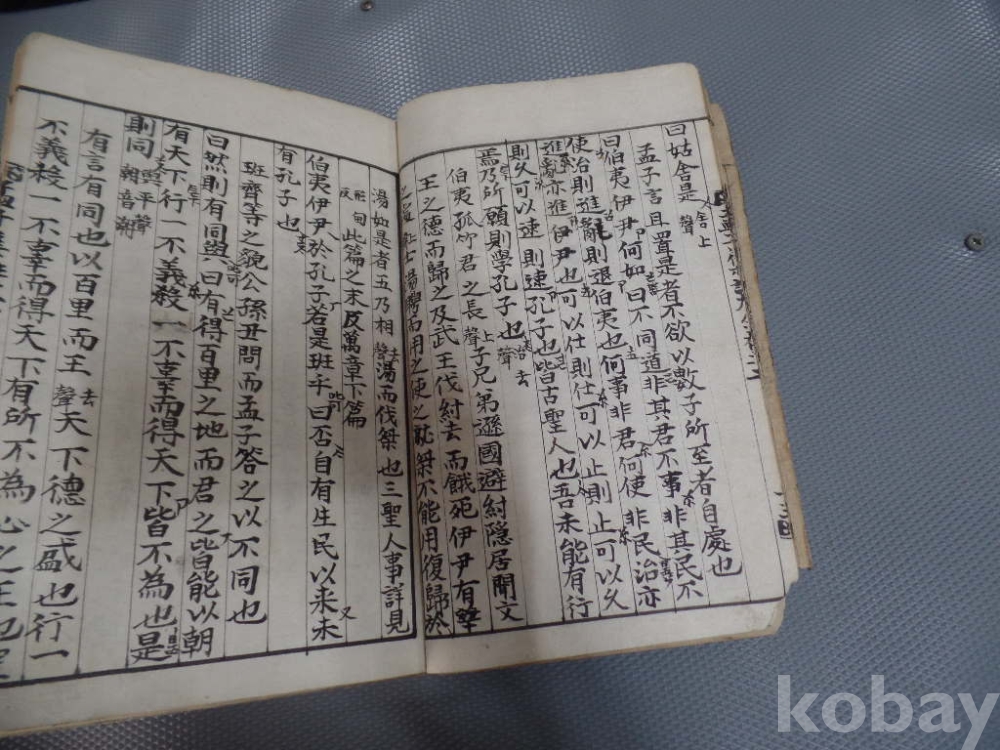 曰姑舍是 舍上聲
孟子言且置是者不欲以數子所至者自處也
曰伯夷伊尹何如曰不同道非其君不事非其民不
使治則進亂則退伯夷也何事非君何使非民治亦
進亂亦進伊尹也可以仕則仕可以止則止可以久
則久可以速則速孔子也皆古聖人也吾未能有行
焉乃所願則學孔子也 治去聲
伯夷孤竹君之長 上聲 子兄弟遜國避紂隱居聞文
王之德而歸之及武王伐紂去而餓死伊尹有莘
之處士湯聘而用之使之就桀桀不能用復歸於
湯如是者五乃相 去聲 湯而伐桀也三聖人事詳見
此篇之末及萬章下篇
伯夷伊尹於孔子若是班乎曰否自有生民以来未
有孔子也
班齊等之貌公孫丑問而孟子答之以不同也
曰然則有同與曰有得百里之地而君之皆能以朝
有天下行一不義殺一不辜而得天下皆不為也是
則同 與平聲朝音潮
有言有同也以百里而王 去聲 天下德之盛也行一
不義殺一不辜而得天下有所不為心之正也
kobay